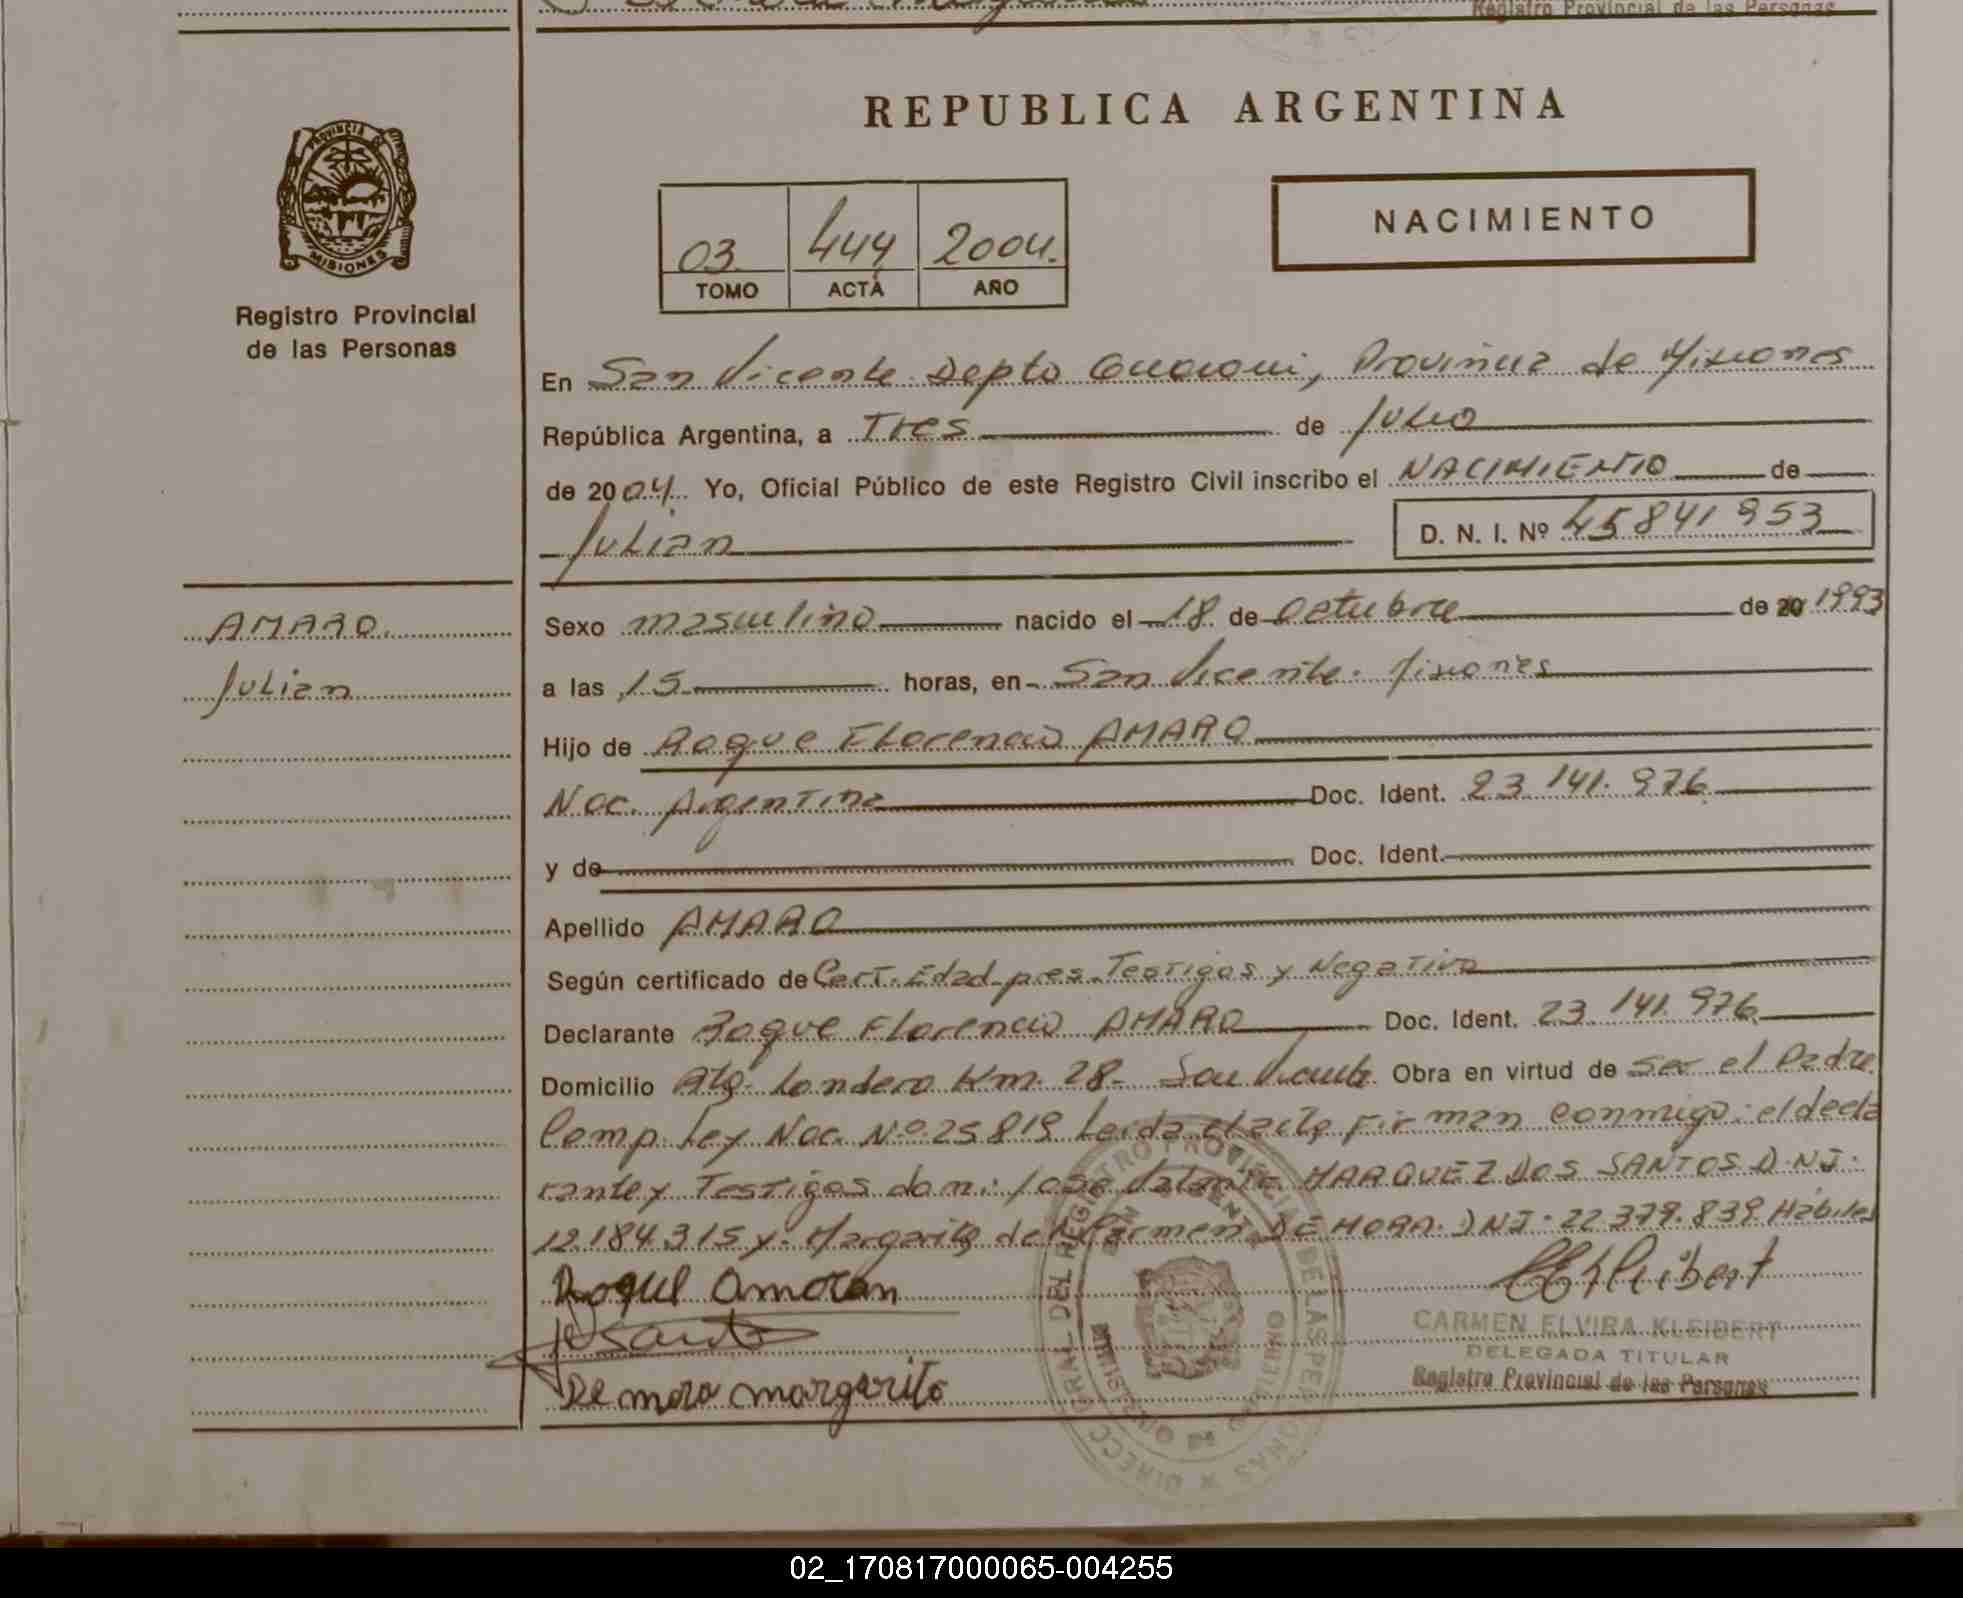 Registro Provincial de las Personas
REPUBLICA ARGENTINA
PROVINCIA DE
MISIONES
Registro Provincial
de las Personas
03. 444 2004.
TOMO ACTA AÑO
NACIMIENTO
En San Vicente Depto Guarani, Provincia de Misiones
República Argentina, a Tres de Julio
de 2004. Yo, Oficial Público de este Registro Civil inscribo el NACIMIENTO de
Julian D. N. I. Nº 45841953
AMARO.
Julian
Sexo masculino nacido el 18 de octubre de 20 1993
a las 15 horas, en San Vicente. Misiones
Hijo de Roque Florencio AMARO
Nac. Argentina Doc. Ident. 23.141.976
y de Doc. Ident.
Apellido AMARO
Según certificado de Cert. Edad pres. Testigos y Negativo
Declarante Roque Florencio AMARO Doc. Ident. 23.141.976
Domicilio Londero Km. 28- San Vicente Obra en virtud de ser el Padre
Comp. Ley Nac. Nº 25819 Leida el acta Firman conmigo: el decla
rante y Testigos don: Jose MARQUEZ DOS SANTOS D.NI.
12.184.315 y. Margarita del Carmen DE MORA. DNI. 22.379.839 Hábiles
Roque Amaran
Santo
De mora margarita
Kleibert
CARMEN ELVIRA KLEIBERT
DELEGADA TITULAR
Registro Provincial de las Personas
DIRECC. GRAL. DEL REGISTRO PROVINCIAL DE LAS PERSONAS
02_170817000065-004255